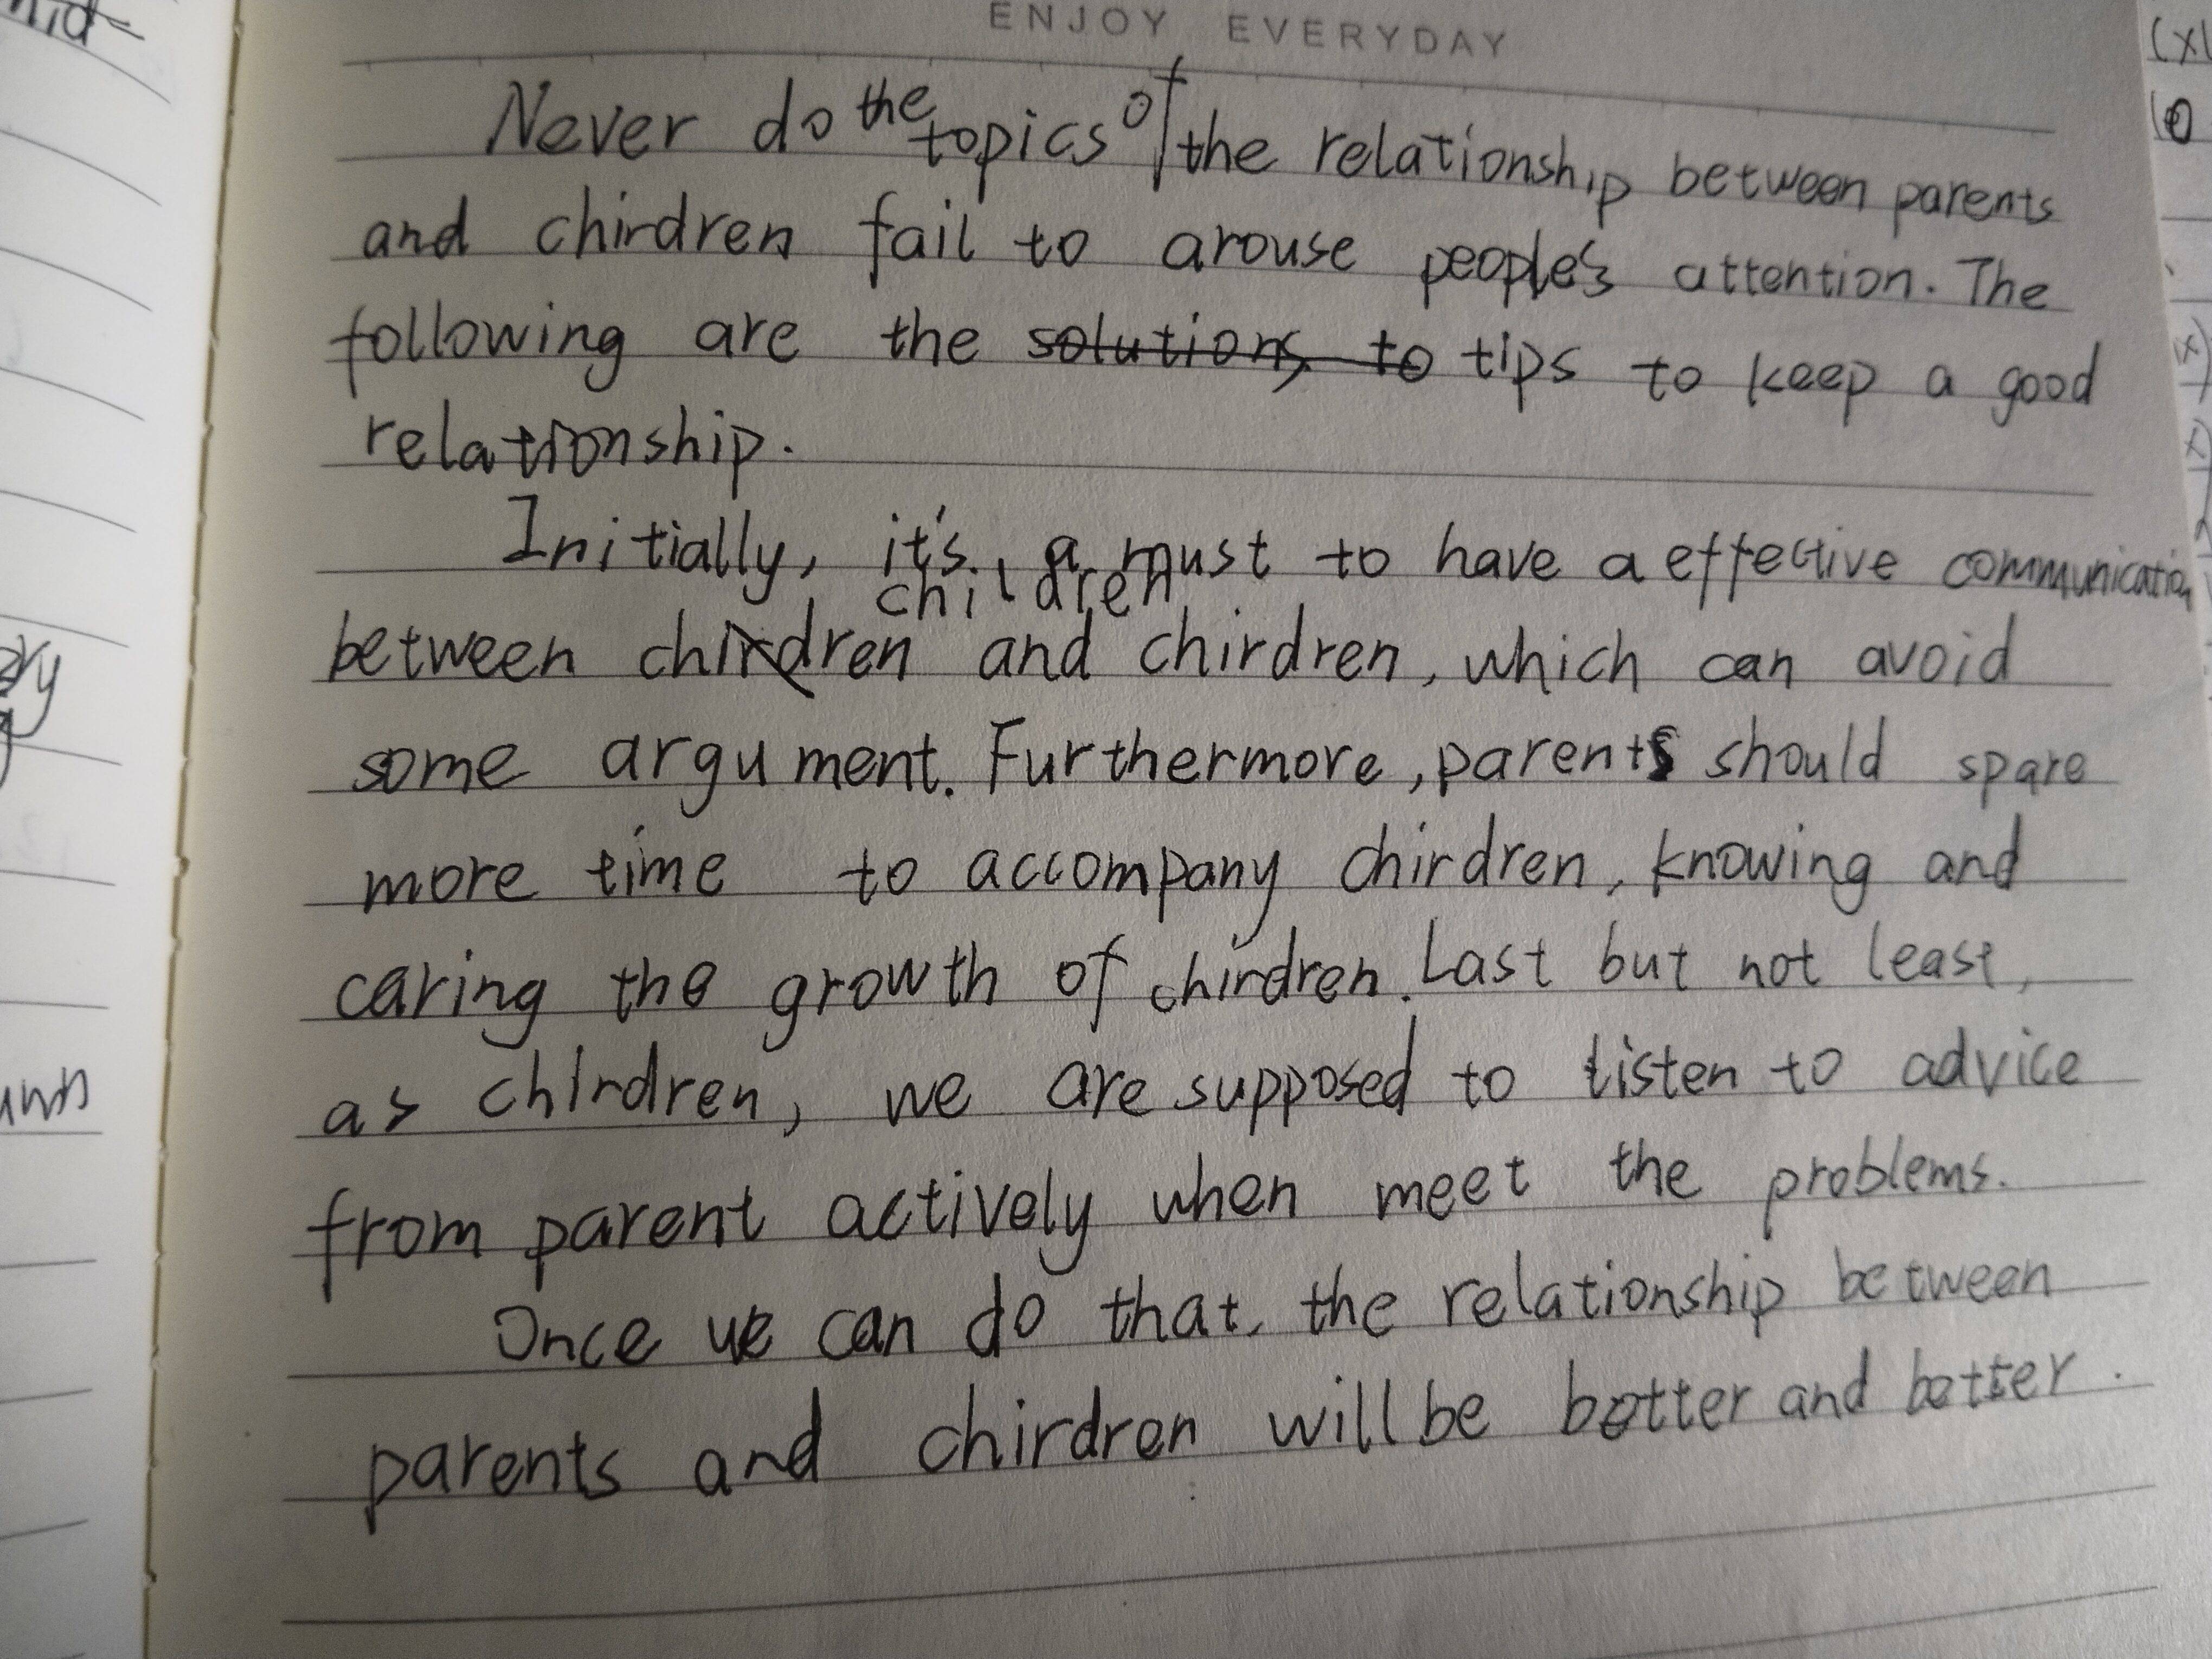 ENJOY EVERYDAY
Never do the topics of the relationship between parents
and chirdren fail to arouse people's attention. The
following are the solutions to tips to keep a good
relationship.
Initially, it's a must to have a effective communication
children
between chirdren and chirdren, which can avoid
some argument. Furthermore, parents should spare
more time to accompany chirdren, knowing and
caring the growth of chirdren. Last but not least,
as chirdren, we are supposed to listen to advice
from parent actively when meet the problems.
Once we can do that, the relationship between
parents and chirdren will be better and better.